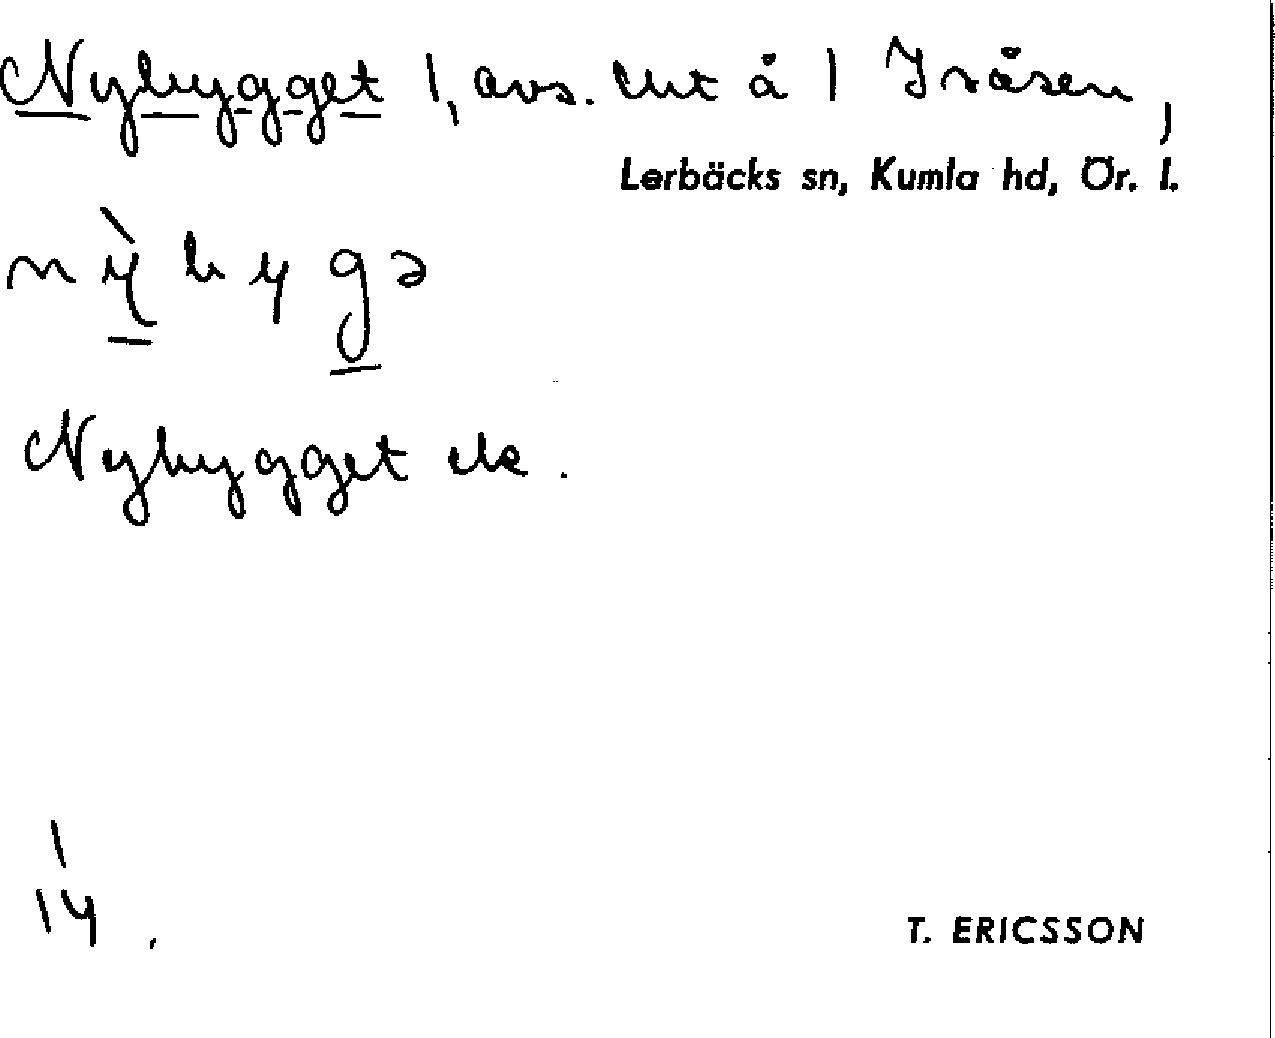 Nybygget 1, avs. lht å 1 Isåsen,
Lerbäcks sn, Kumla hd, Ör. l.
nỳbygə
Nybygget ek.
1
14.
T. ERICSSON